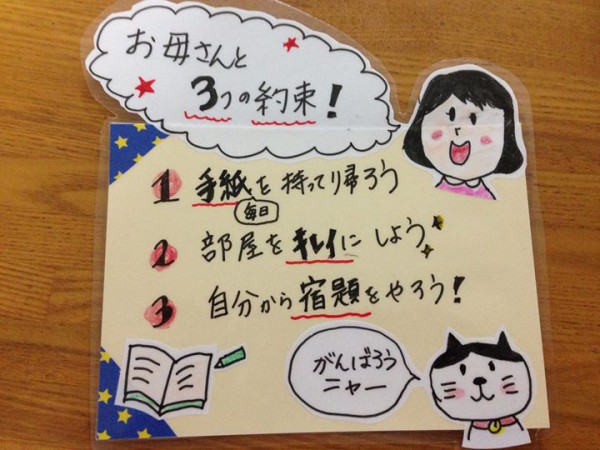 お母さんと
3つの約束!
1 手紙を持って帰ろう
毎日
2 部屋をキレイにしよう
3 自分から宿題をやろう!
がんばろう
ニャー